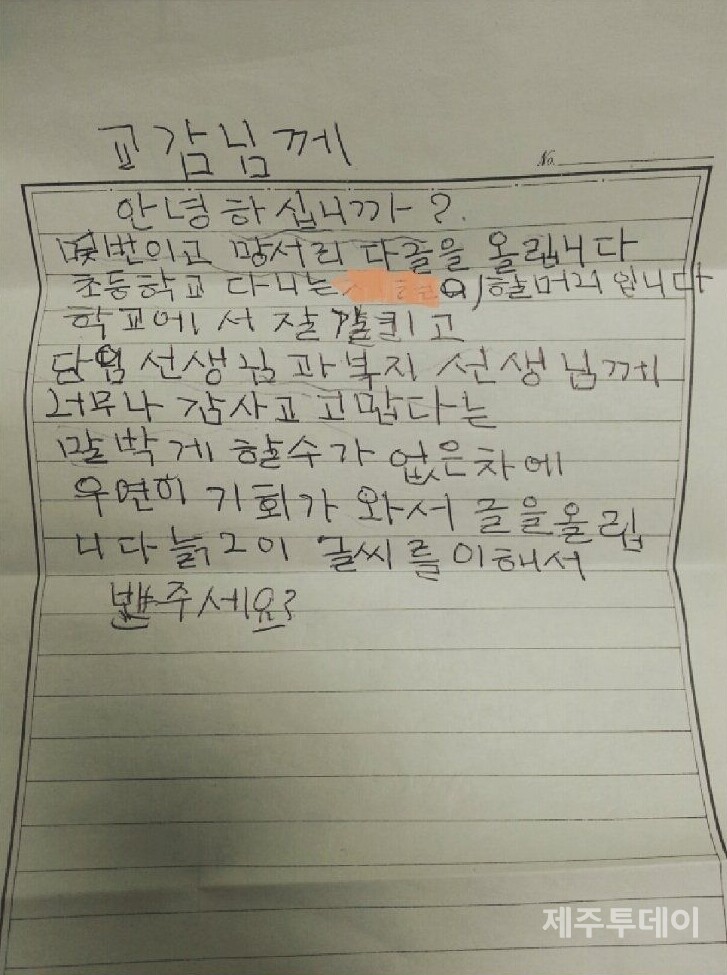 교감님께
No.
안녕하십니까?.
몇번이고 망서리 다글을 올립니다
초등학교 다니는 할머니 입니다
학교에서 잘 갈키고
담임 선생님 과 복지 선생님께
너무나 감사고 고맙다는
말박게 할수가 없은차에
우연히 기회가 와서 글을올립
니다 늙그이 글씨를 이해서
봐주세요?
제주투데이